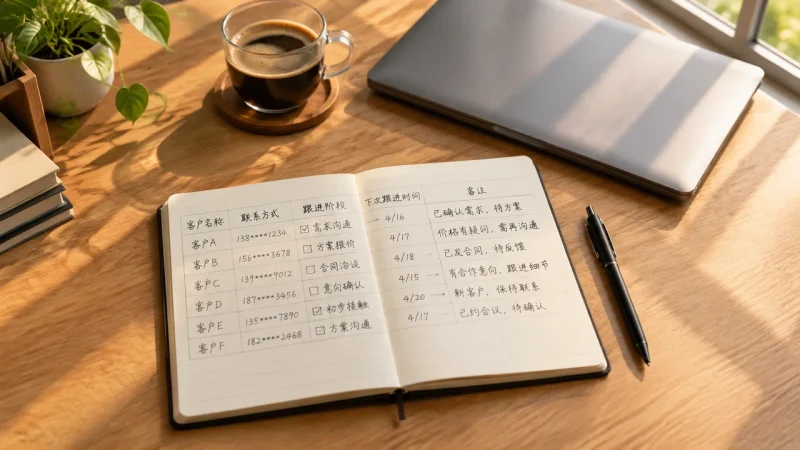 客户名称 联系方式 跟进阶段 下次跟进时间 备注
客户A 138****1234 ☑ 需求沟通 4/16 已确认需求，待方案
客户B 156****3678 ☐ 方案报价 4/17 价格有疑问，需再沟通
客户C 139****9012 ☐ 合同洽谈 4/18 已发合同，待反馈
客户D 187****3456 ☐ 意向确认 4/15 有合作意向，跟进细节
客户E 135****7890 ☑ 初步接触 4/20 新客户，保持联系
客户F 182****2468 ☑ 方案沟通 4/17 已约会议，待确认